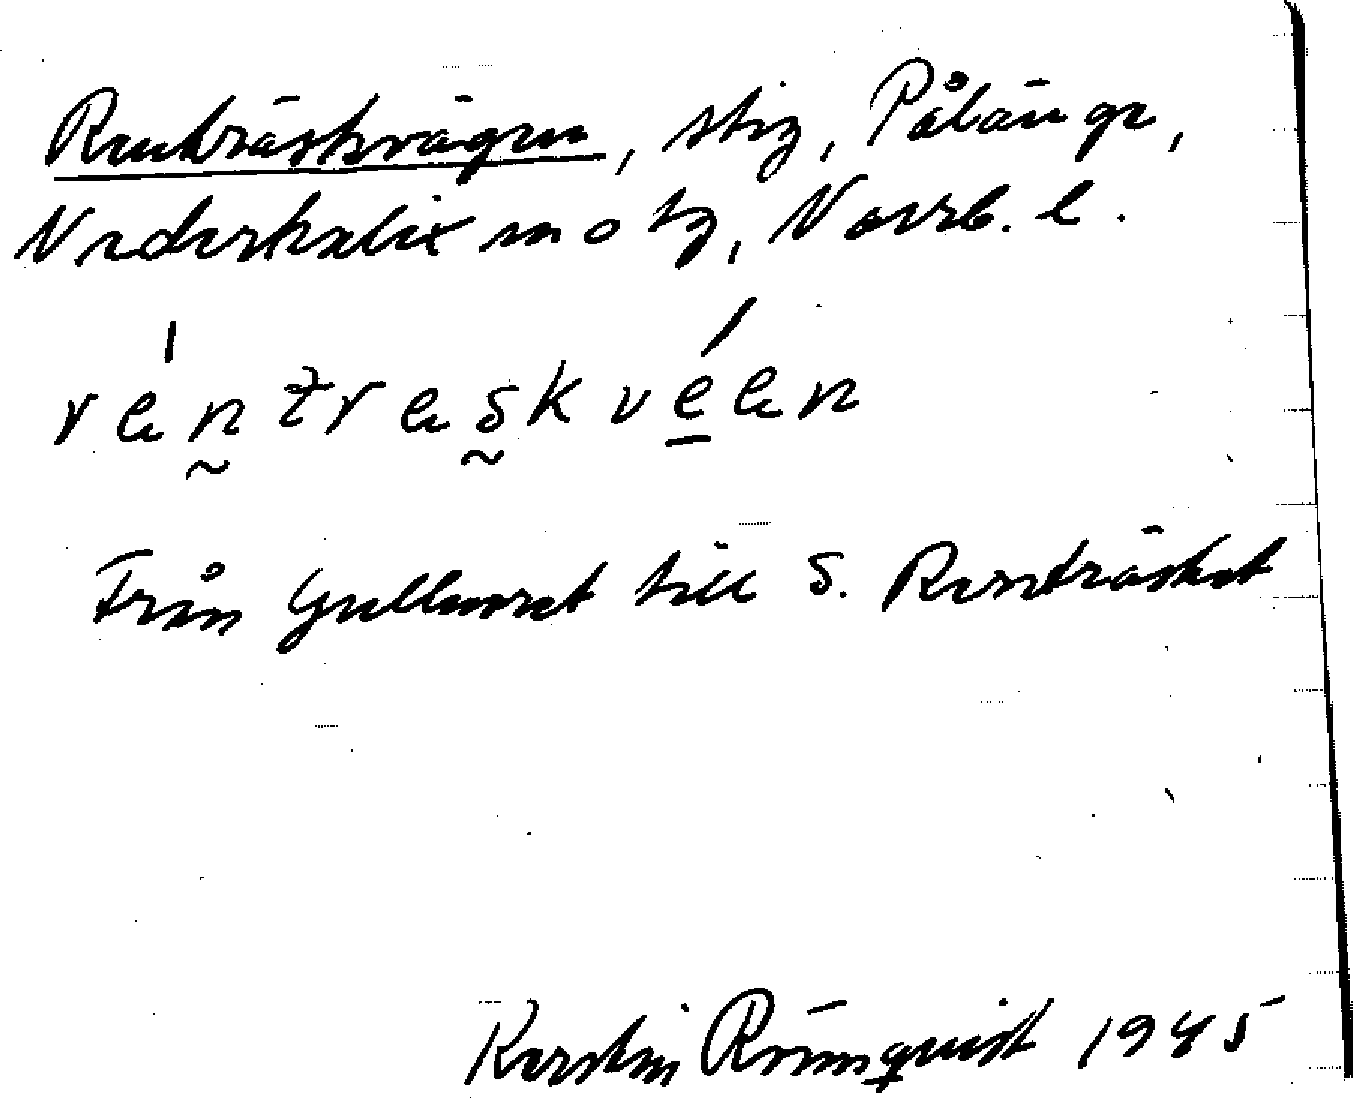 Renträskvägen, stig, Pålänge,
Nederkalix sn o tg, Norrb. l.
réntreskvéen
Från Gullmoret till S. Renträsket
Kerstin Rönnquist 1945